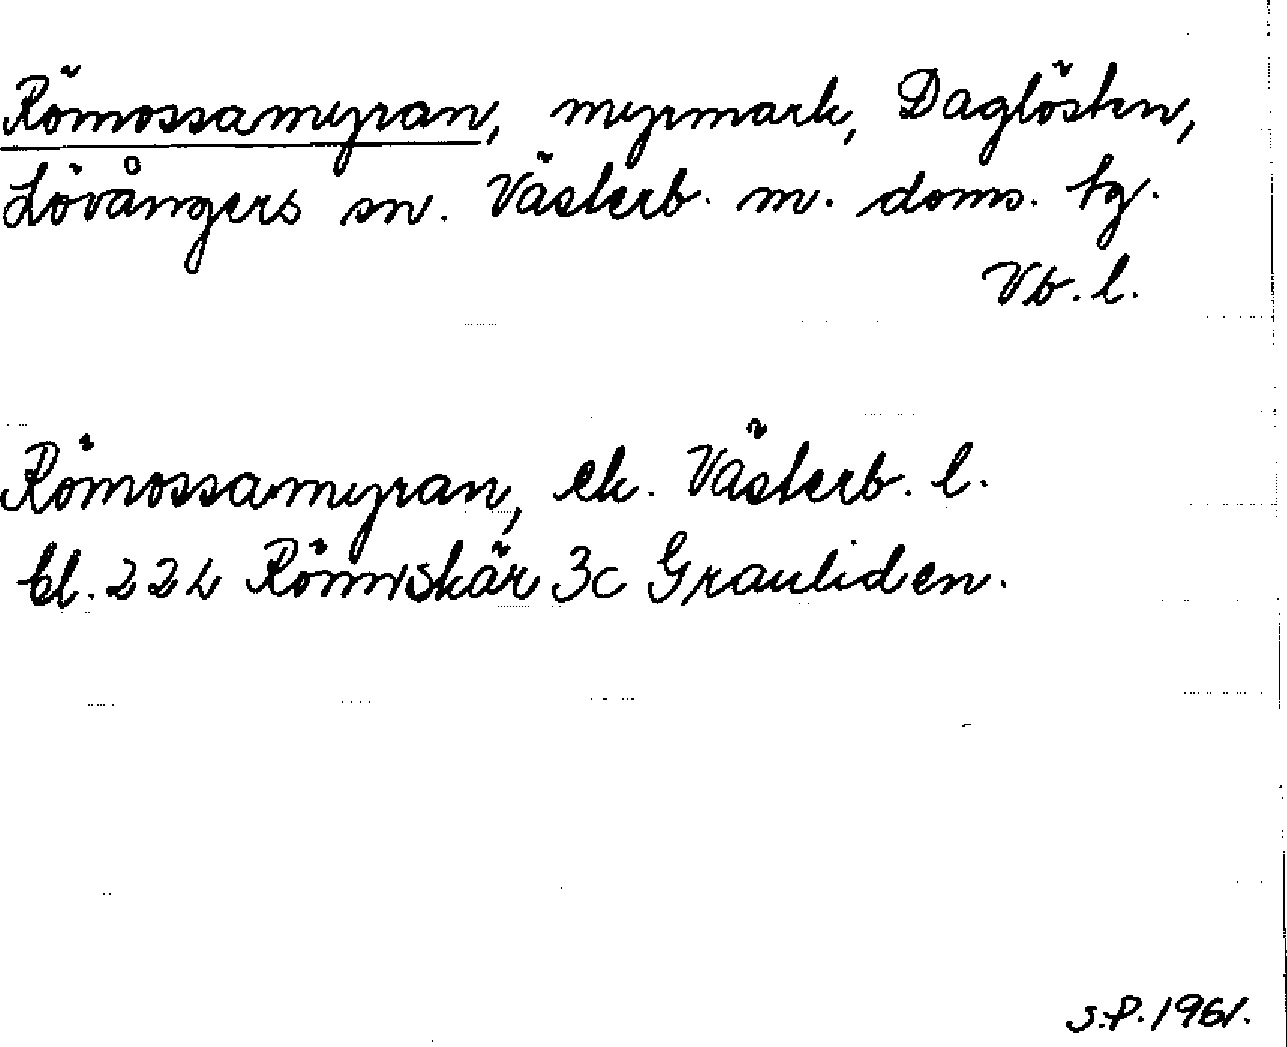 Römossamyran, myrmark, Daglösten,
Lövångers sn. Västerb. m. doms. tg.
Vb. l.
Römossamyran, ek. Västerb. l.
bl. 22L Rönnskär 3c Grauliden.
S.P. 1961.